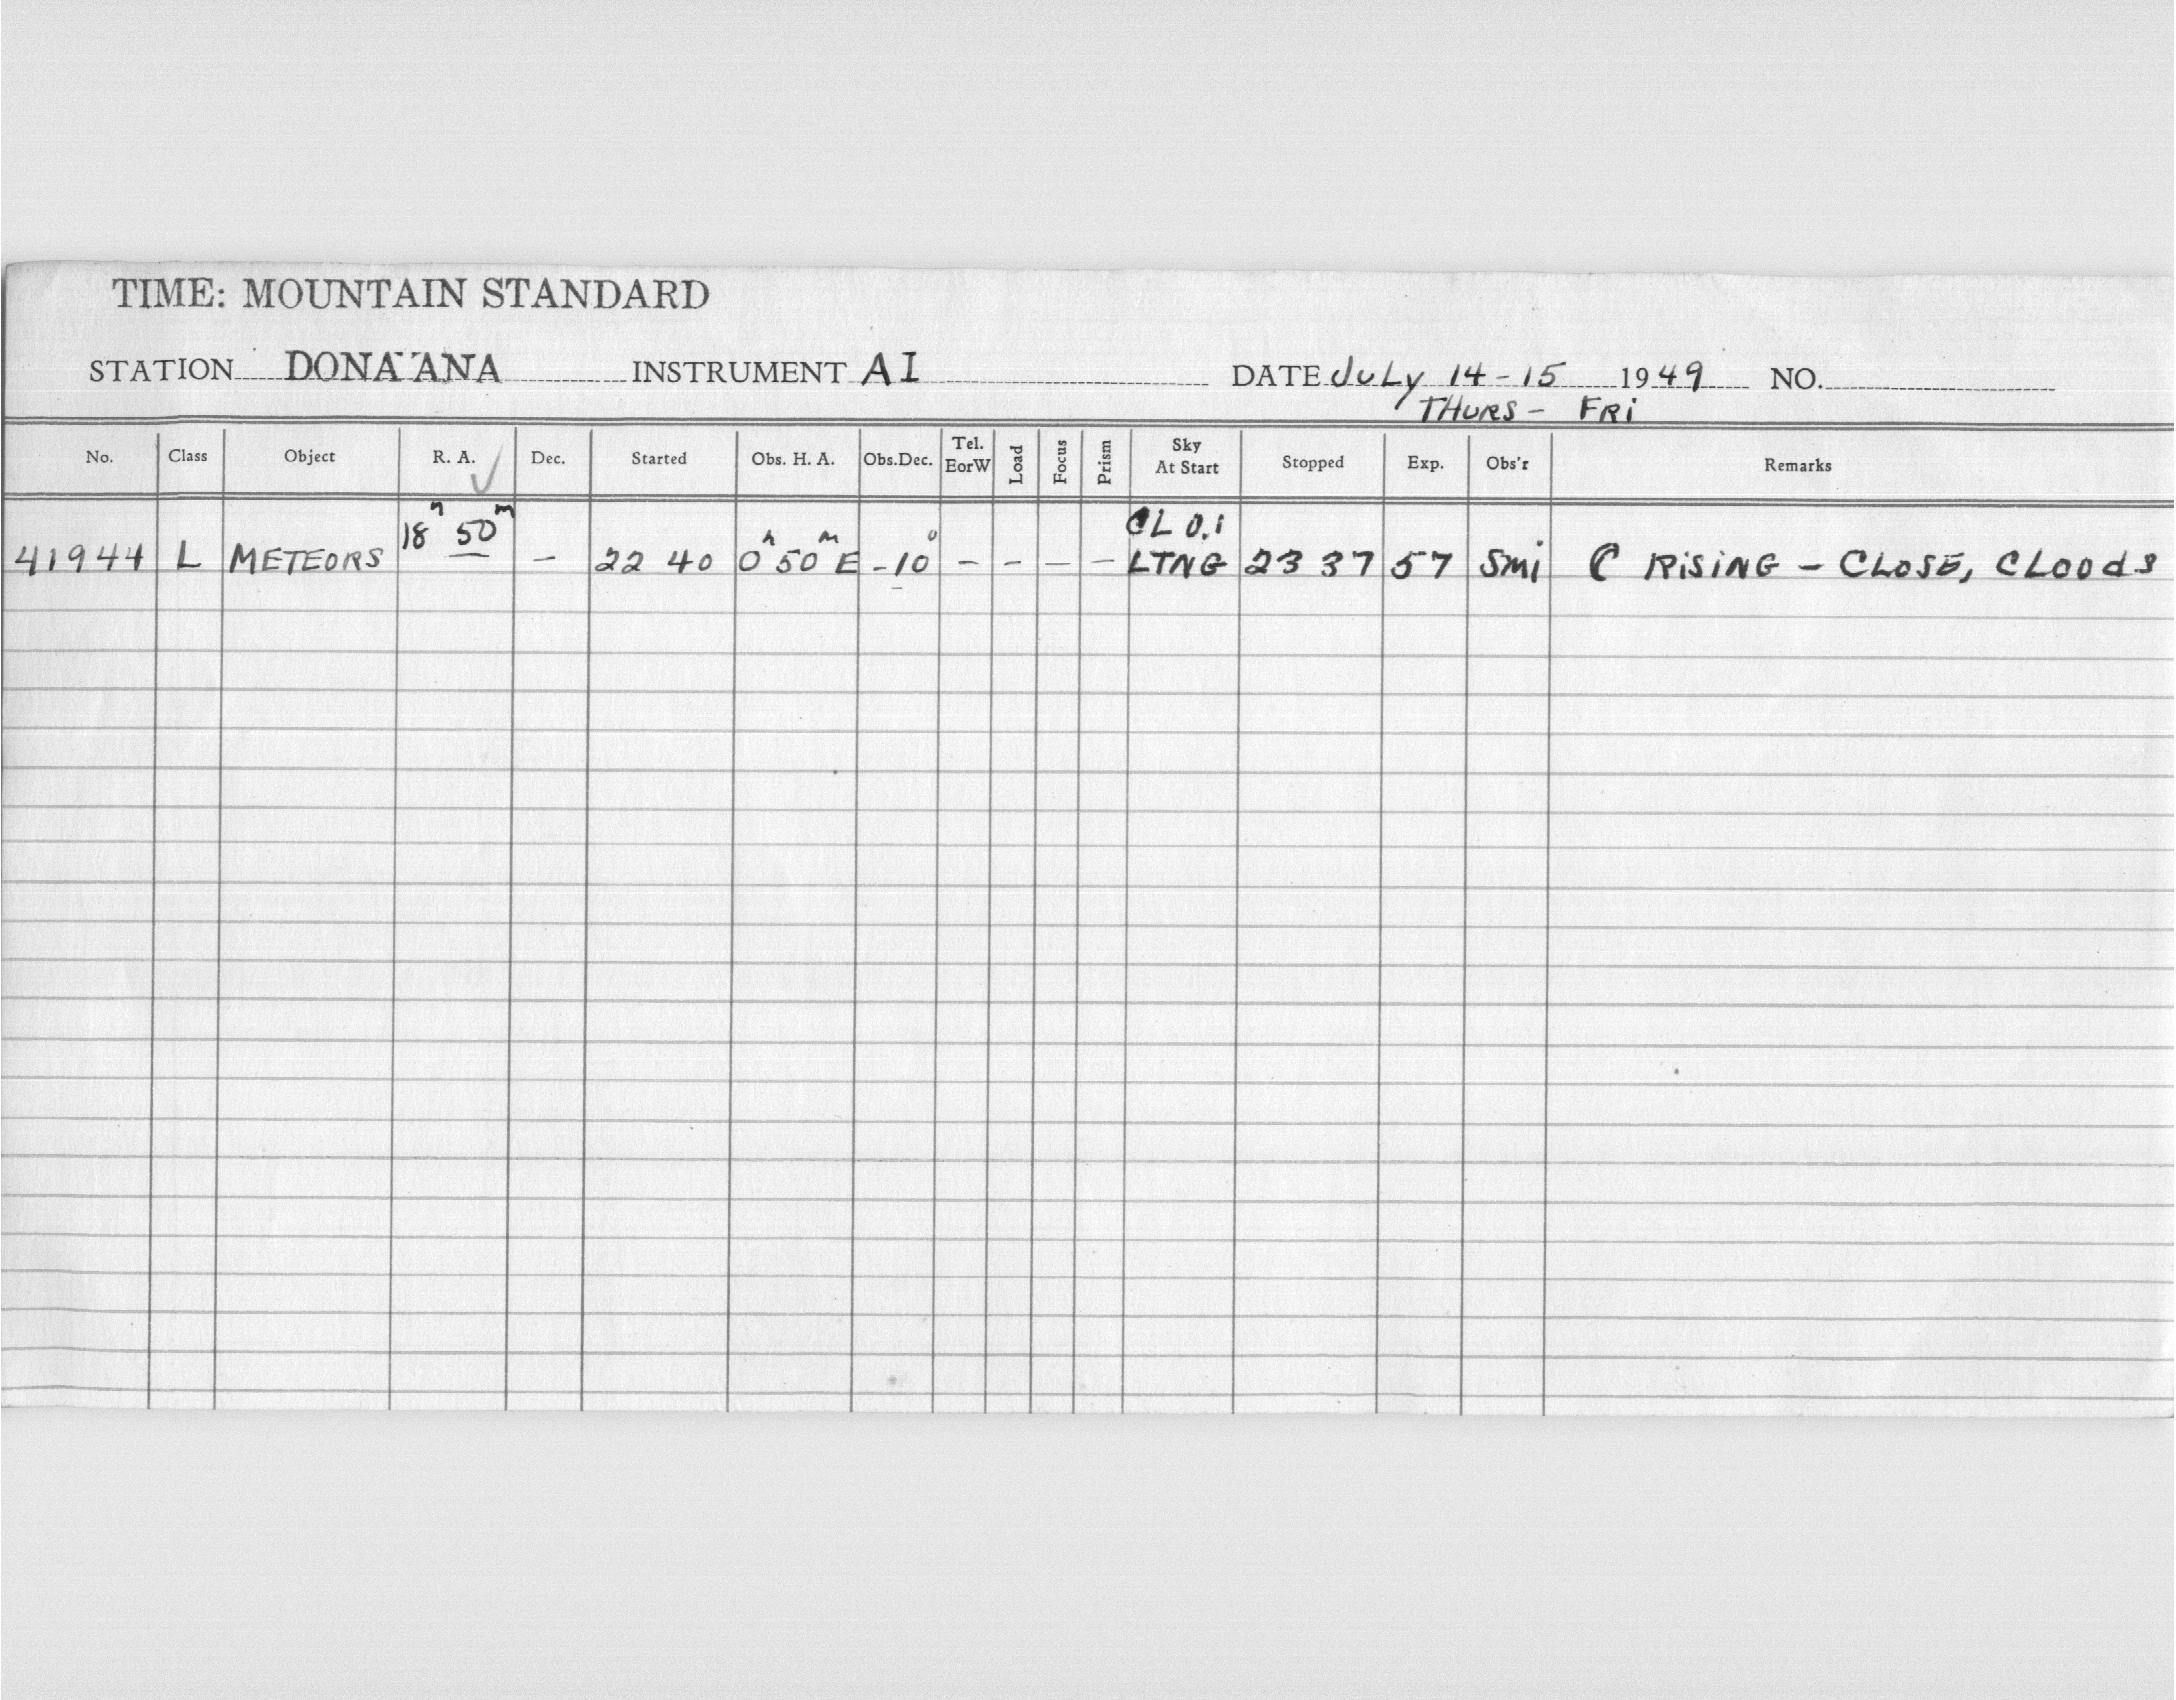 TIME: MOUNTAIN STANDARD
STATION DONA ANA INSTRUMENT AI DATE JULY 14-15 1949 NO.
THURS - FRI
No. Class Object R. A. Dec. Started Obs. H. A. Obs.Dec. Tel. EorW Load Focus Prism Sky At Start Stopped Exp. Obs'r Remarks
18h 50m CL 0.1
41944 L METEORS - 22 40 0h 50m E -10° - - - - LTNG 23 37 57 Smi ☾ RISING - CLOSE, CLOODS